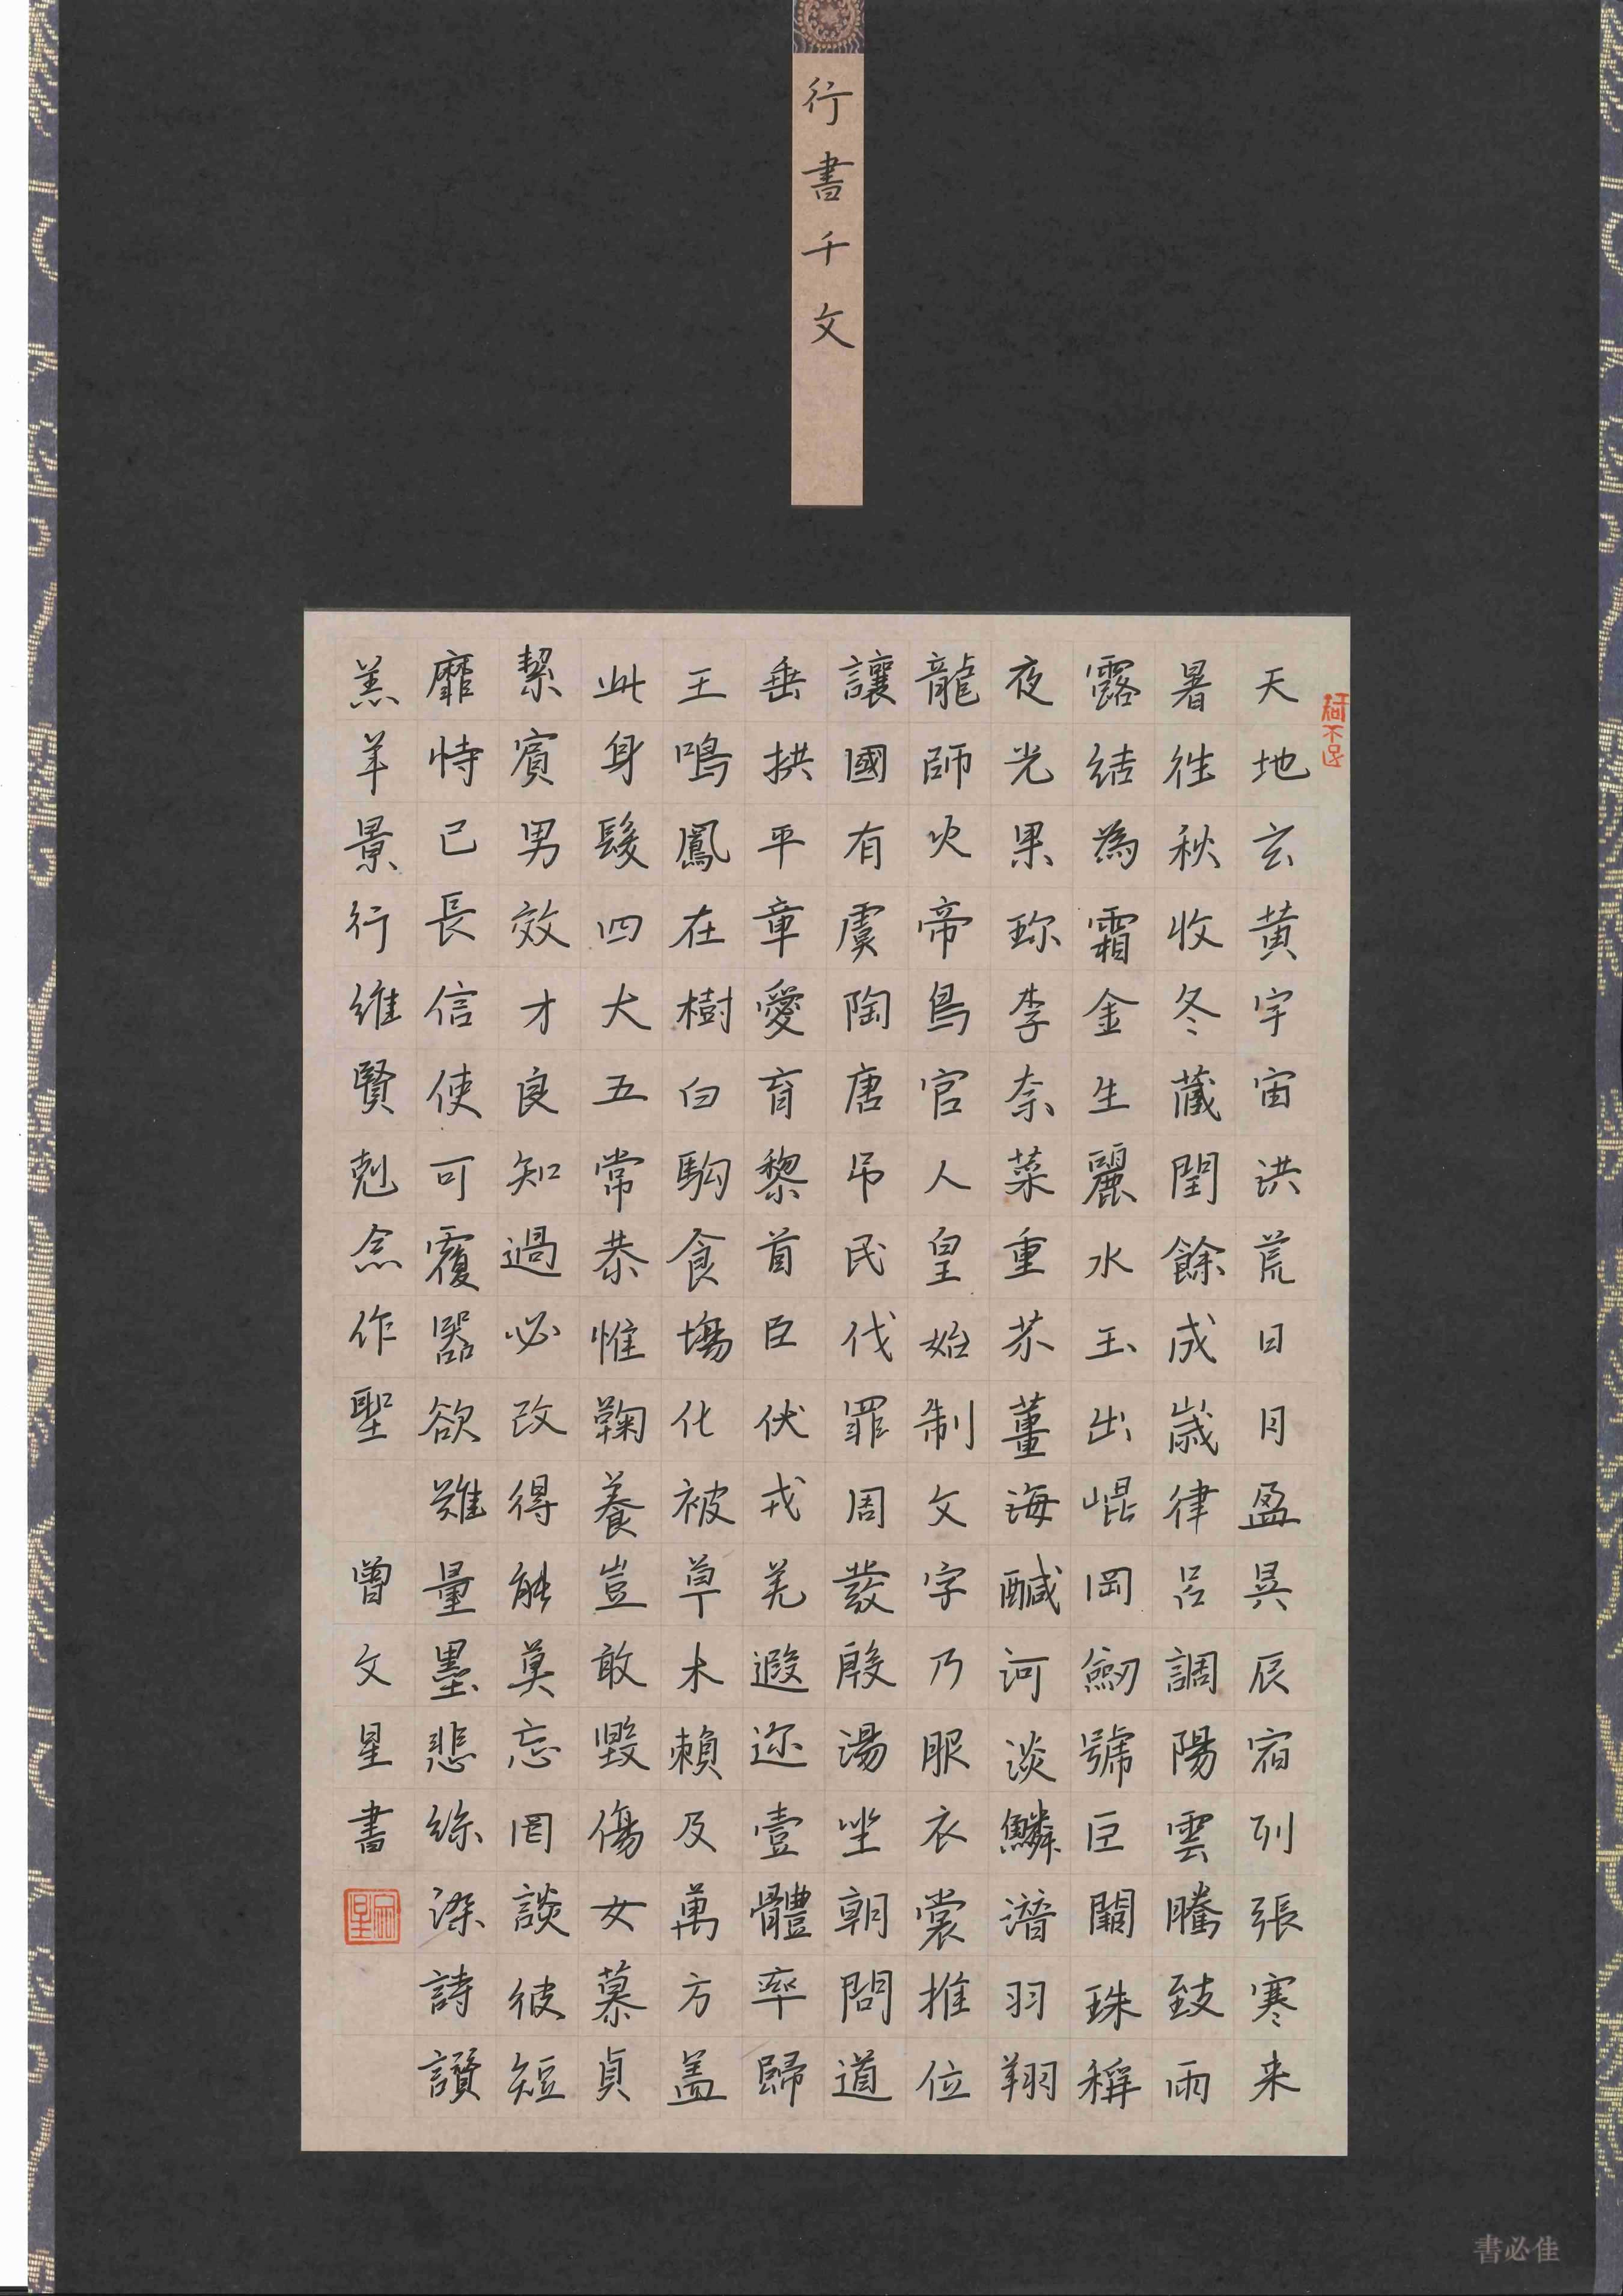 行書千文
天地玄黄宇宙洪荒日月盈昃辰宿列張寒来
暑往秋收冬藏閏餘成歲律吕調陽雲騰致雨
露結為霜金生麗水玉出崐岡劒號巨闕珠稱
夜光果珎李柰菜重芥薑海醎河淡鱗潛羽翔
龍師火帝鳥官人皇始制文字乃服衣裳推位
讓國有虞陶唐吊民伐罪周發殷湯坐朝問道
垂拱平章愛育黎首臣伏戎羌遐迩壹體率歸
王鳴鳳在樹白駒食場化被草木賴及萬方盖
此身髮四大五常恭惟鞠養豈敢毀傷女慕貞
絜賓男效才良知過必改得能莫忘罔談彼短
靡恃己長信使可覆器欲難量墨悲絲染詩讚
羔羊景行維賢剋念作聖
曾文星書
書必佳